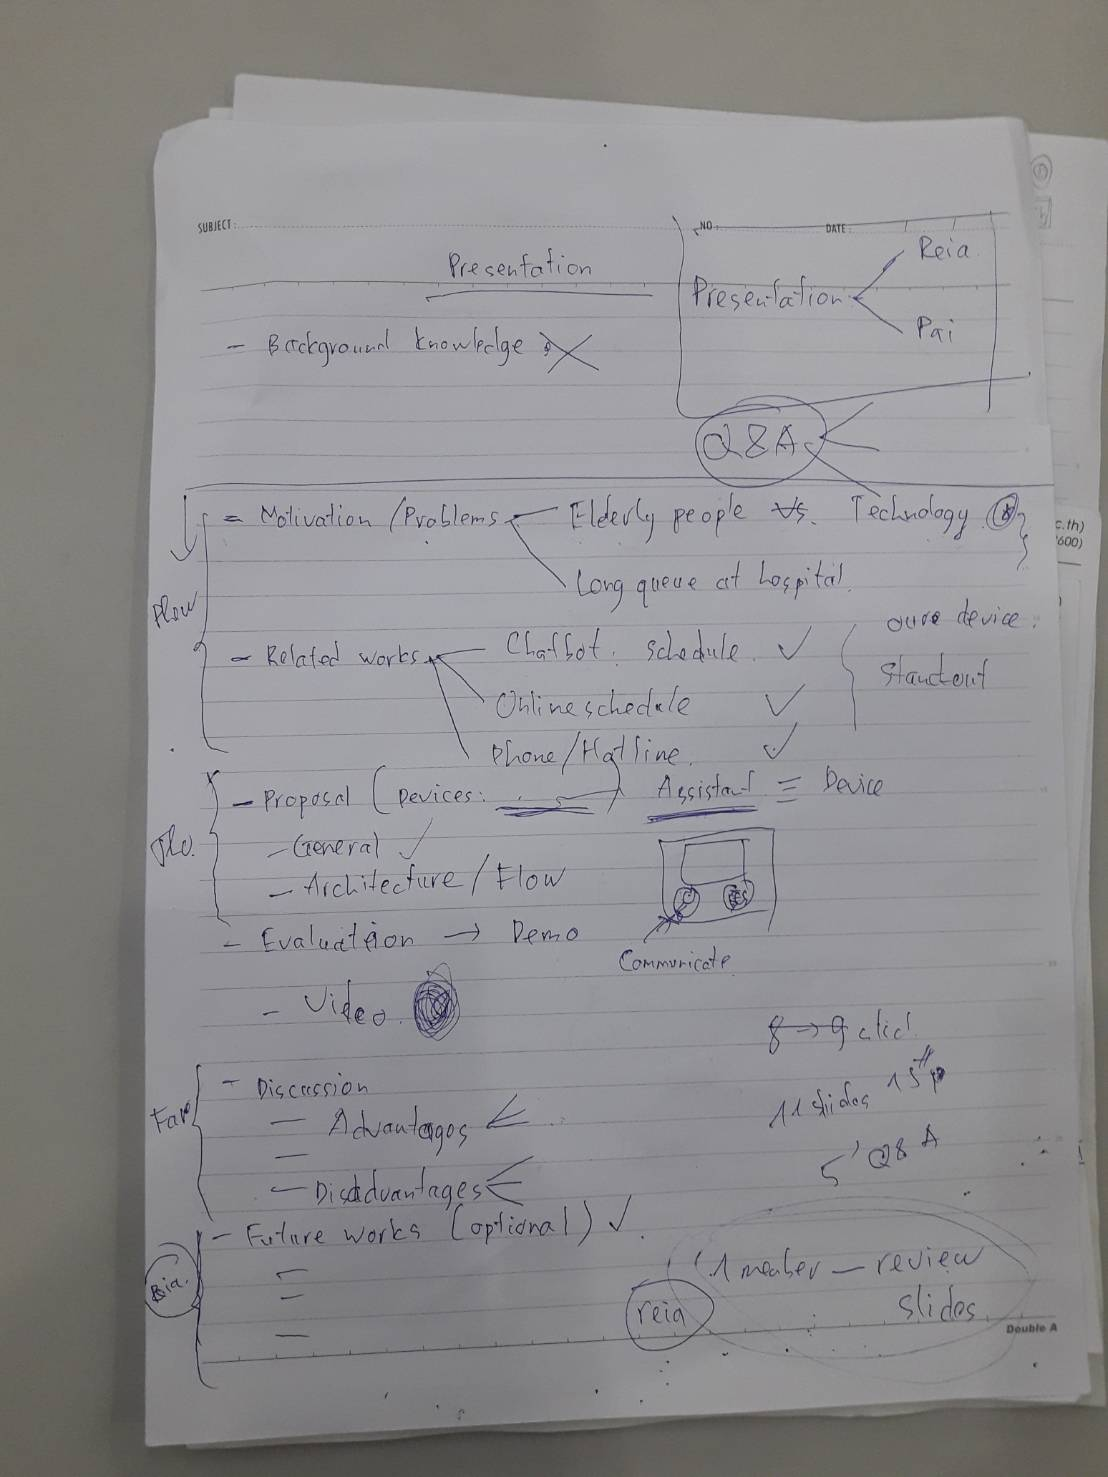 SUBJECT:
NO.
DATE
Presentation
Presentation
Reia
Pai
- Background knowledge
Q&A
= Motivation / Problems
Elderly people vs. Technology
Long queue at hospital
c.th)
600)
Flow
- Related works
Chatbot. schedule. ✓
Online schedule ✓
Phone/Hotline. ✓
oure device:
standout
- Proposal (Devices: )
Assistant = Device
- General ✓
- Architecture / Flow
- Evaluation → Demo
Communicate
- Video.
8 → 9 
11 slides 15
5' Q&A
- Discussion
- Advantages
- Disadvantages
Far
- Future works (optional) ✓
1 member - review
slides.
reia
Double A